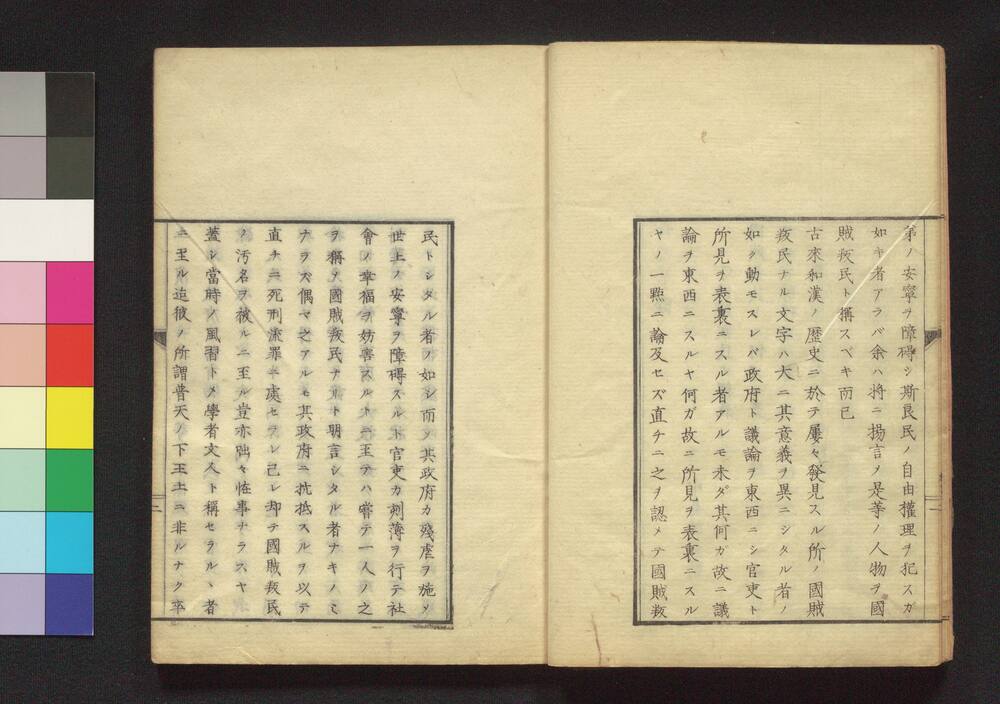 弟ノ安寧ヲ障碍シ斯良民ノ自由權理ヲ犯スガ
如キ者アラバ余ハ將ニ揚言メ是等ノ人物ヲ國
賊叛民ト稱スベキ而已
古來和漢ノ歴史ニ於テ屢々發見スル所ノ國賊
叛民ナル文字ハ大ニ其意義ヲ異ニシタル者ノ
如ク動モスレバ政府ト議論ヲ東西ニシ官吏ト
所見ヲ表裏ニスル者アルモ未ダ其何ガ故ニ議
論ヲ東西ニスルヤ何ガ故ニ所見ヲ表裏ニスル
ヤノ一㸃ニ論及セズ直チニ之ヲ認メテ國賊叛
民トシタル者ノ如シ而ソ其政府カ殘虐ヲ施ソ
世上ノ安寧ヲ障碍スルト官吏カ刻薄ヲ行テ社
會ノ幸福ヲ妨害スルトニ至テハ嘗テ一人ノ之
ヲ稱ソ國賊叛民ナリト明言シタル者ナキノミ
ナラズ偶マ之アルモ其政府ニ抗抵スルヲ以テ
直チニ死刑流罪ニ處セラレ己レ却テ國賊叛民
ノ汚名ヲ被ルニ至ル豈亦咄々恠事ナラスヤ
蓋シ當時ノ風習トメ學者文人ト稱セラルヽ者
ニ至ル迠彼ノ所謂普天ノ下王土ニ非ルナク率
二